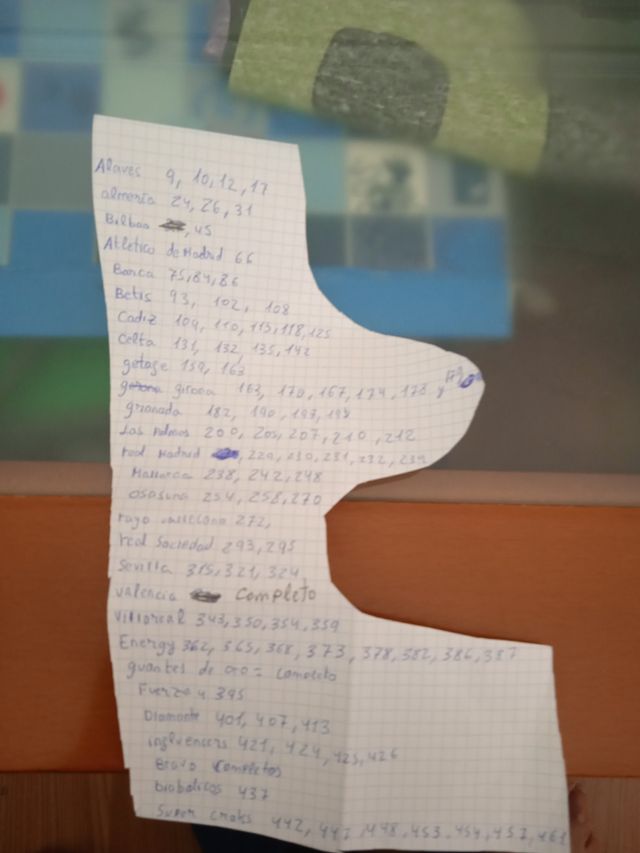 Alaves 9, 10, 12, 17
almeria 24, 26, 31
Bilbao , 45
Atletico de Madrid 66
Barca 75, 84, 86
Betis 93, 102, 108
Cadiz 109, 110, 115, 118, 125
Celta 131, 132, 135, 142
getafe 159, 163
girona 163, 170, 167, 174, 178 y
granada 182, 190, 193, 198
Las Palmas 200, 205, 207, 210, 212
real Madrid , 229, 230, 231, 232, 239
Mallorca 238, 242, 248
osasuna 254, 258, 270
rayo 272,
real Sociedad 293, 295
Sevilla 315, 321, 324
Valencia Completo
Villareal 343, 350, 354, 359
Energy 362, 365, 368, 373, 378, 382, 386, 387
guantes de oro = Completo
Fuerza 4 395
Diamante 401, 407, 413
influencers 421, 424, 425, 426
Bravo Completos
Diabolicos 437
Super craks 442, 447, 448, 453, 454, 457, 461